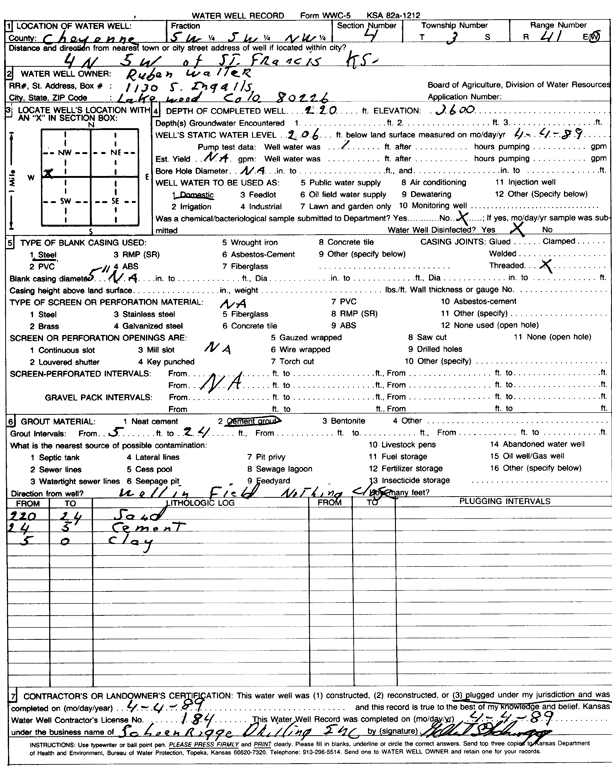 WATER WELL RECORD Form WWC-5 KSA 82a-1212
1 LOCATION OF WATER WELL: Fraction Section Number Township Number Range Number
County: Cheyenne SW ¼ SW ¼ NW ¼ 4 T 3 S R 41 E(W)
Distance and direction from nearest town or city street address of well if located within city?
4N 5W of ST. Francis KS.
2 WATER WELL OWNER: Ruben Walter
RR#, St. Address, Box # : 1130 S. Ingalls Board of Agriculture, Division of Water Resources
City, State, ZIP Code : Lakewood Colo 80226 Application Number:
3 LOCATE WELL'S LOCATION WITH AN "X" IN SECTION BOX:
N
NW NE
W X E
SW SE
S
1 Mile
4 DEPTH OF COMPLETED WELL 220 ft. ELEVATION: 3600
Depth(s) Groundwater Encountered 1. ft. 2. ft. 3. ft.
WELL'S STATIC WATER LEVEL 206 ft. below land surface measured on mo/day/yr 4-4-89
Pump test data: Well water was ft. after hours pumping gpm
Est. Yield NA gpm: Well water was ft. after hours pumping gpm
Bore Hole Diameter NA in. to ft., and in. to ft.
WELL WATER TO BE USED AS: 5 Public water supply 8 Air conditioning 11 Injection well
1 Domestic 3 Feedlot 6 Oil field water supply 9 Dewatering 12 Other (Specify below)
2 Irrigation 4 Industrial 7 Lawn and garden only 10 Monitoring well
Was a chemical/bacteriological sample submitted to Department? Yes No X; If yes, mo/day/yr sample was submitted Water Well Disinfected? Yes X No
5 TYPE OF BLANK CASING USED: 5 Wrought iron 8 Concrete tile CASING JOINTS: Glued Clamped
1 Steel 3 RMP (SR) 6 Asbestos-Cement 9 Other (specify below) Welded
2 PVC 4 ABS 7 Fiberglass Threaded X
Blank casing diameter 5" NA in. to ft., Dia in. to ft., Dia in. to ft.
Casing height above land surface in., weight lbs./ft. Wall thickness or gauge No.
TYPE OF SCREEN OR PERFORATION MATERIAL: NA 7 PVC 10 Asbestos-cement
1 Steel 3 Stainless steel 5 Fiberglass 8 RMP (SR) 11 Other (specify)
2 Brass 4 Galvanized steel 6 Concrete tile 9 ABS 12 None used (open hole)
SCREEN OR PERFORATION OPENINGS ARE: 5 Gauzed wrapped 8 Saw cut 11 None (open hole)
1 Continuous slot 3 Mill slot NA 6 Wire wrapped 9 Drilled holes
2 Louvered shutter 4 Key punched 7 Torch cut 10 Other (specify)
SCREEN-PERFORATED INTERVALS: From ft. to ft., From ft. to ft.
From NA ft. to ft., From ft. to ft.
GRAVEL PACK INTERVALS: From ft. to ft., From ft. to ft.
From ft. to ft., From ft. to ft.
6 GROUT MATERIAL: 1 Neat cement 2 Cement grout 3 Bentonite 4 Other
Grout Intervals: From 5 ft. to 24 ft., From ft. to ft., From ft. to ft.
What is the nearest source of possible contamination: 10 Livestock pens 14 Abandoned water well
1 Septic tank 4 Lateral lines 7 Pit privy 11 Fuel storage 15 Oil well/Gas well
2 Sewer lines 5 Cess pool 8 Sewage lagoon 12 Fertilizer storage 16 Other (specify below)
3 Watertight sewer lines 6 Seepage pit 9 Feedyard 13 Insecticide storage
Direction from well? Well in Field Nothing Close How many feet?
FROM TO LITHOLOGIC LOG FROM TO PLUGGING INTERVALS
220 24 Sand
24 5 Cement
5 0 Clay
7 CONTRACTOR'S OR LANDOWNER'S CERTIFICATION: This water well was (1) constructed, (2) reconstructed, or (3) plugged under my jurisdiction and was
completed on (mo/day/year) 4-4-89 and this record is true to the best of my knowledge and belief. Kansas
Water Well Contractor's License No. 184 This Water Well Record was completed on (mo/day/yr) 4-4-89
under the business name of Schoenrogge Drilling INC by (signature)
INSTRUCTIONS: Use typewriter or ball point pen. PLEASE PRESS FIRMLY and PRINT clearly. Please fill in blanks, underline or circle the correct answers. Send top three copies to Kansas Department
of Health and Environment, Bureau of Water Protection, Topeka, Kansas 66620-7320. Telephone: 913-296-5514. Send one to WATER WELL OWNER and retain one for your records.